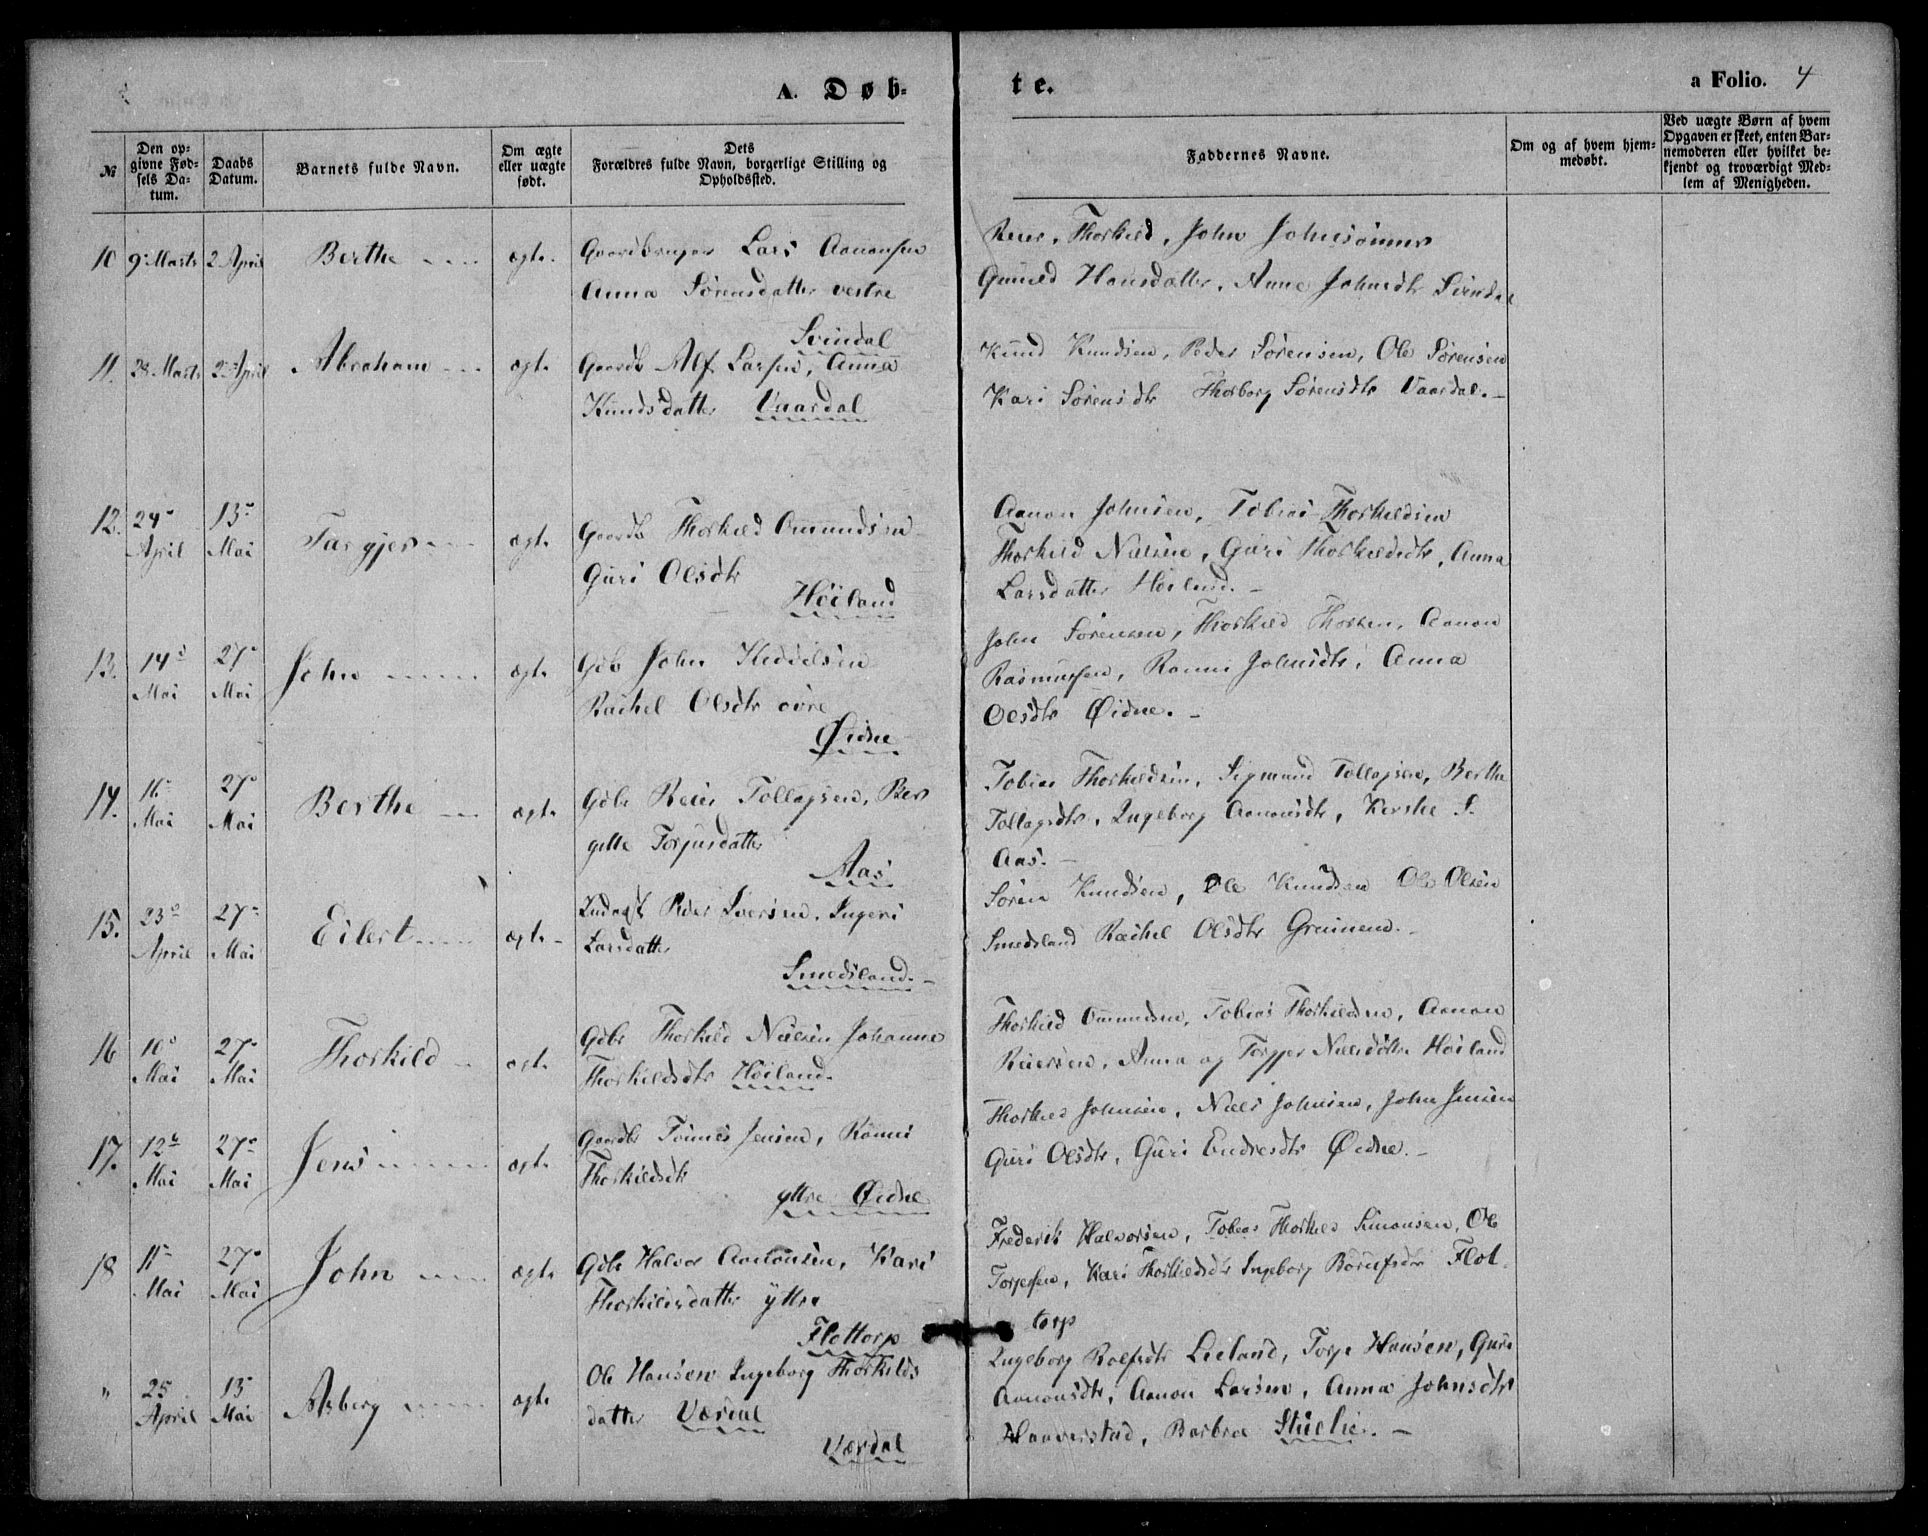 A. Døb-
te.
a Folio. 4
№
Den op-
givne Fød-
sels Da-
tum.
Daabs
Datum.
Barnets fulde Navn.
Om ægte
eller uægte
født.
Dets
Forældres fulde Navn, borgerlige Stilling og
Opholdssted.
Faddernes Navne.
Om og af hvem hjem-
medøbt.
Ved uægte Børn af hvem
Opgaven er skeet, enten Bar-
nemoderen eller hvilket be-
kjendt og troværdigt Med-
lem af Menigheden.
10 9 Marts 2 April Berthe ægte. Gaardbruger Lars Aanonsen
Anna Sørensdatter vestre
Svindal
Reier, Thorkild, John Johnsønner
Gunild Hansdatter, Anne Johnsdtr Svindal
11. 28 Marts 2 April Abraham ægte Gaardb Alf Larsen, Anna
Knudsdatter Vaardal
Knud Knudsen, Peder Sørensen, Ole Sørensen
Kari Sørensdtr Thorborg Sørensdtr Vaardal. -
12. 24 April 13 Mai Targjer ægte Gaardb Thorkild Omundsen
Guri Olsdtr
Høiland
Aanon Johnsen, Tobias Thorkildsen
Thorkild Nielsen, Guri Thorkildsdtr, Anna
Larsdatter Høiland. -
13. 14 Mai 27 Mai John ægte Gdb John Keddelsen
Rachel Olsdtr øvre
Øidne
John Sørensen, Thorkild Thorsen, Aanon
Rasmussen, Ranni Johnsdtr, Anna
Olsdtr Øidne. -
14. 16 Mai 27 Mai Berthe ægte Gdbr Reier Tollagsen, Ber
gitte Torjusdatter
Aas
Tobias Thorkildsen, Sigmund Tollagsen, Berthe
Tollagsdtr, Ingeborg Aanonsdtr, Kirstie S.
Aas. -
15. 23 April 27 Mai Eilert ægte - Peder Iversen, Ingeri
Larsdatter
Smedsland. -
Søren Knudsen, Ole Knudsen Ole Olsen
Smedsland Rachel Olsdtr Gruinen. -
16 10 Mai 27 Mai Thorkild ægte Gdbr Thorkild Nielsen Johanne
Thorkildsdtr Høiland.
Thorkild Omundsen, Tobias Thorkildsen, Aanon
Reiersen, Anna og Torgjer Nielsdøttre Høiland
17. 12 Mai 27 Mai Jens ægte Gaardb Tønnes Jensen, Ranni
Thorkildsdtr
yttre Øidne
Thorkild Johnsen, Niels Johnsen, John Jensen
Guri Olsdtr, Guri Endresdtr Øidne. -
18 11 Mai 27 Mai John ægte Gdbr Halvor Aanonsen, Kari
Thorkildsdatter yttre
Flottorp
Frederik Halvorsen, Tobias Thorkild Simonsen, Ole
Torjesen, Kari Thorkildsdtr Ingeborg Flot-
torp
" 25 April 13 Mai Asberg ægte Ole Hansen Ingeborg Thorkilds
datter Værdal
Værdal
Ingeborg Rolfsdtr Lieland, Torje Hansen, Guri
Aanonsdtr, Aanon Larsen, Anna Johnsdtr
Haaverstad, Barbra Stuelie. -